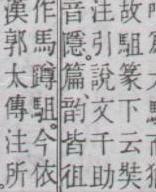 故駔篆下云奘
注引說文千助
音隱。篇韵皆徂
作馬蹲駔。今依
漢郭太傳注。所